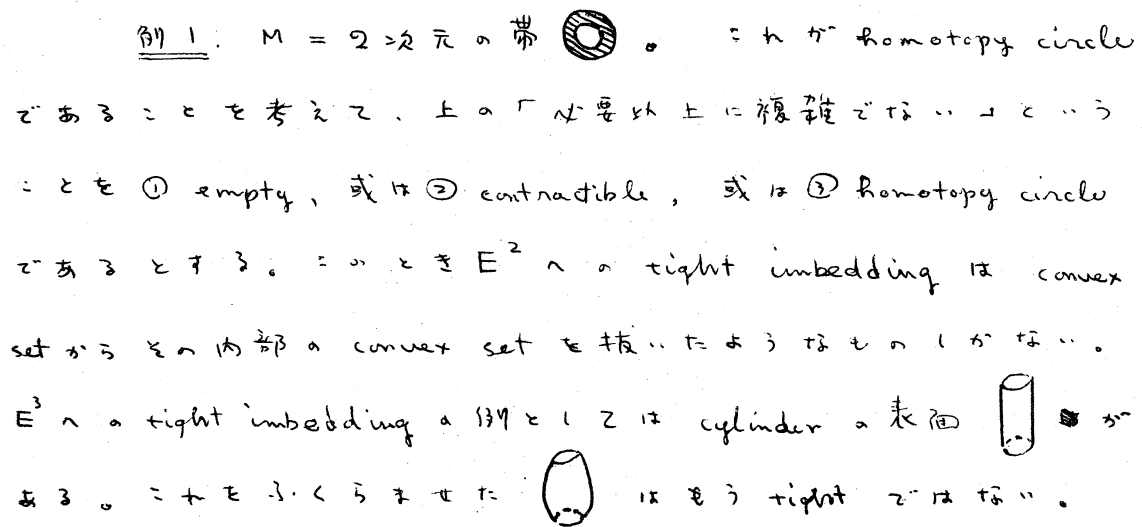 例1. M = 2次元の帯 。 これが homotopy circle
であることを考えて、上の「必要以上に複雑でない」という
ことを ① empty, 或は ② contractible, 或は ③ homotopy circle
であるとする。このとき E² への tight imbedding は convex
set からその内部の convex set を抜いたようなものしかない。
E³ への tight imbedding の例としては cylinder の表面 が
ある。これをふくらませた はもう tight ではない。